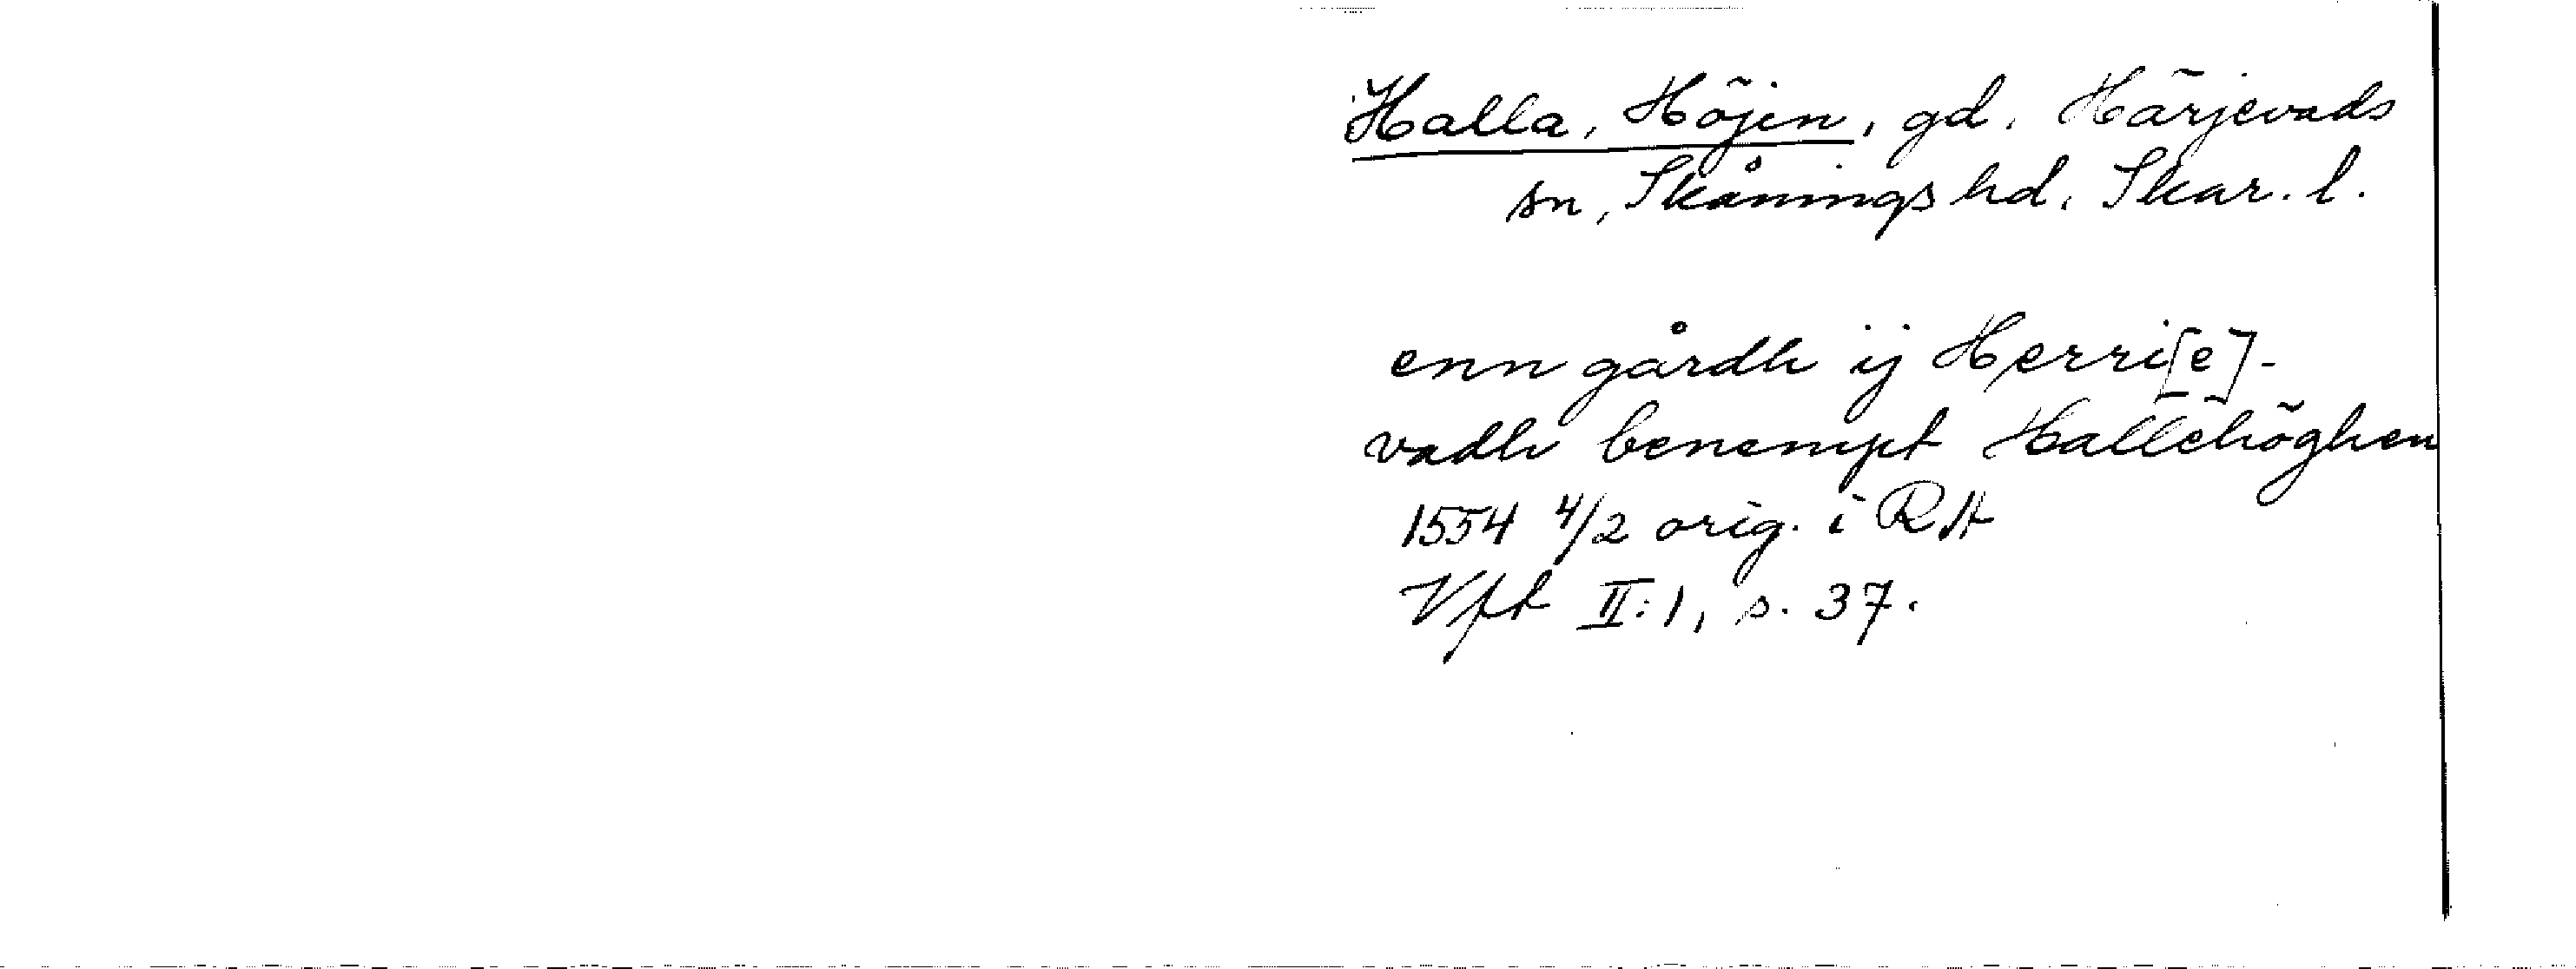 Halla, Höjen, gd, Härjevads
sn, Skånings hd, Skar. l.
enn gårdh ij Herri[e]-
vadh benempt Hallehöghen
1554 4/2 orig. i RA
Vft II:1, s. 37.